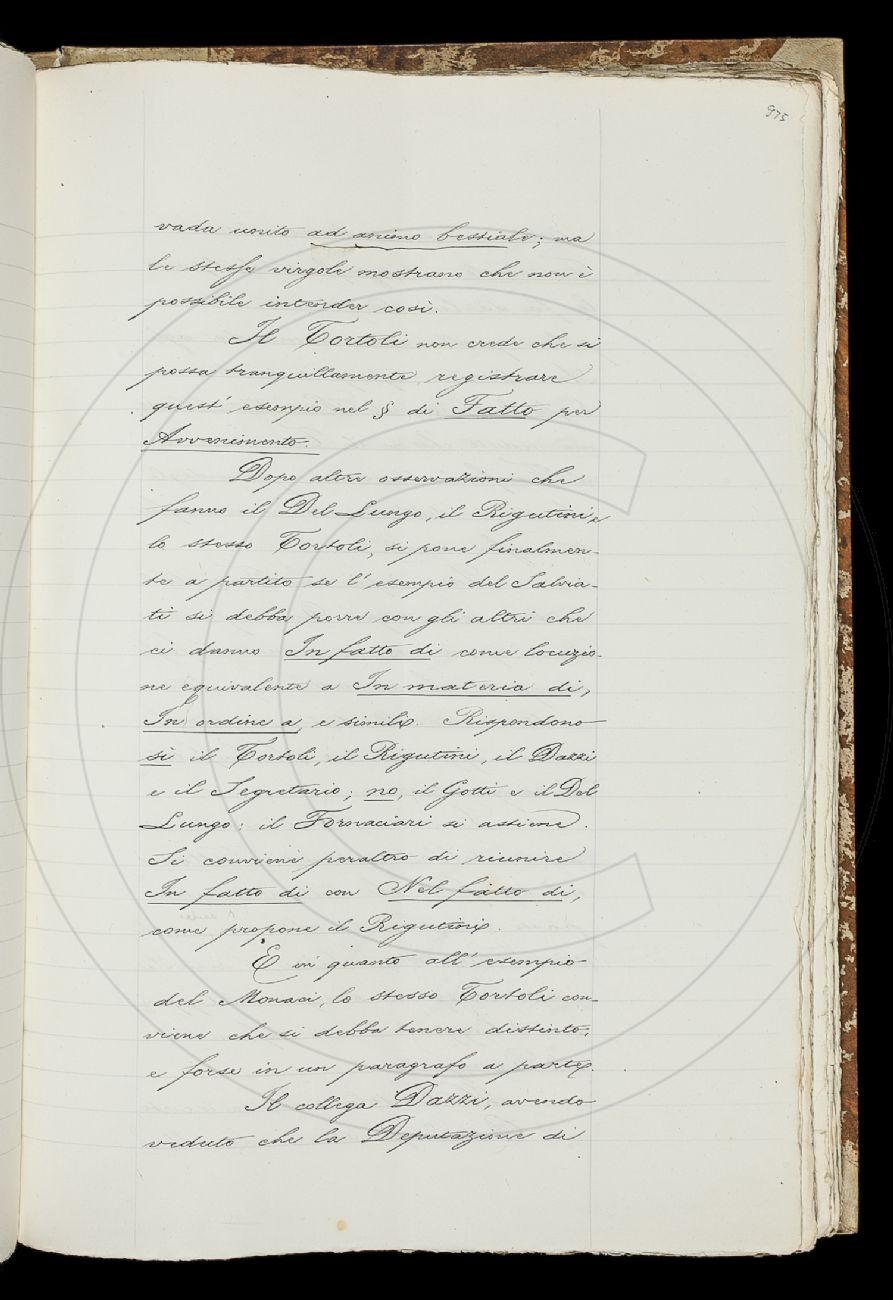 975
vada unito ad animo bestiale; ma
le stesse virgole mostrano che non è
possibile intender così.
Il Tortoli non crede che si
possa tranquillamente registrare
quest' esempio nel § di Fatto per
Avvenimento.
Dopo altre osservazioni che
fanno il Del Lungo, il Rigutini e
lo stesso Tortoli, si pone finalmen-
te a partito se l' esempio del Salvia-
ti si debba porre con gli altri che
ci danno In fatto di come locuzio-
ne equivalente a In materia di,
In ordine a, e simili. Rispondono
sì il Tortoli, il Rigutini, il Dazzi
e il Segretario; no, il Gotti e il Del
Lungo: il Fornaciari si astiene.
Si conviene peraltro di riunire
In fatto di con Nel fatto di,
come propone il Rigutini.
E in quanto all' esempio
del Monaci, lo stesso Tortoli con-
viene che si debba tenere distinto,
e forse in un paragrafo a parte.
Il collega Dazzi, avendo
veduto che la Deputazione di